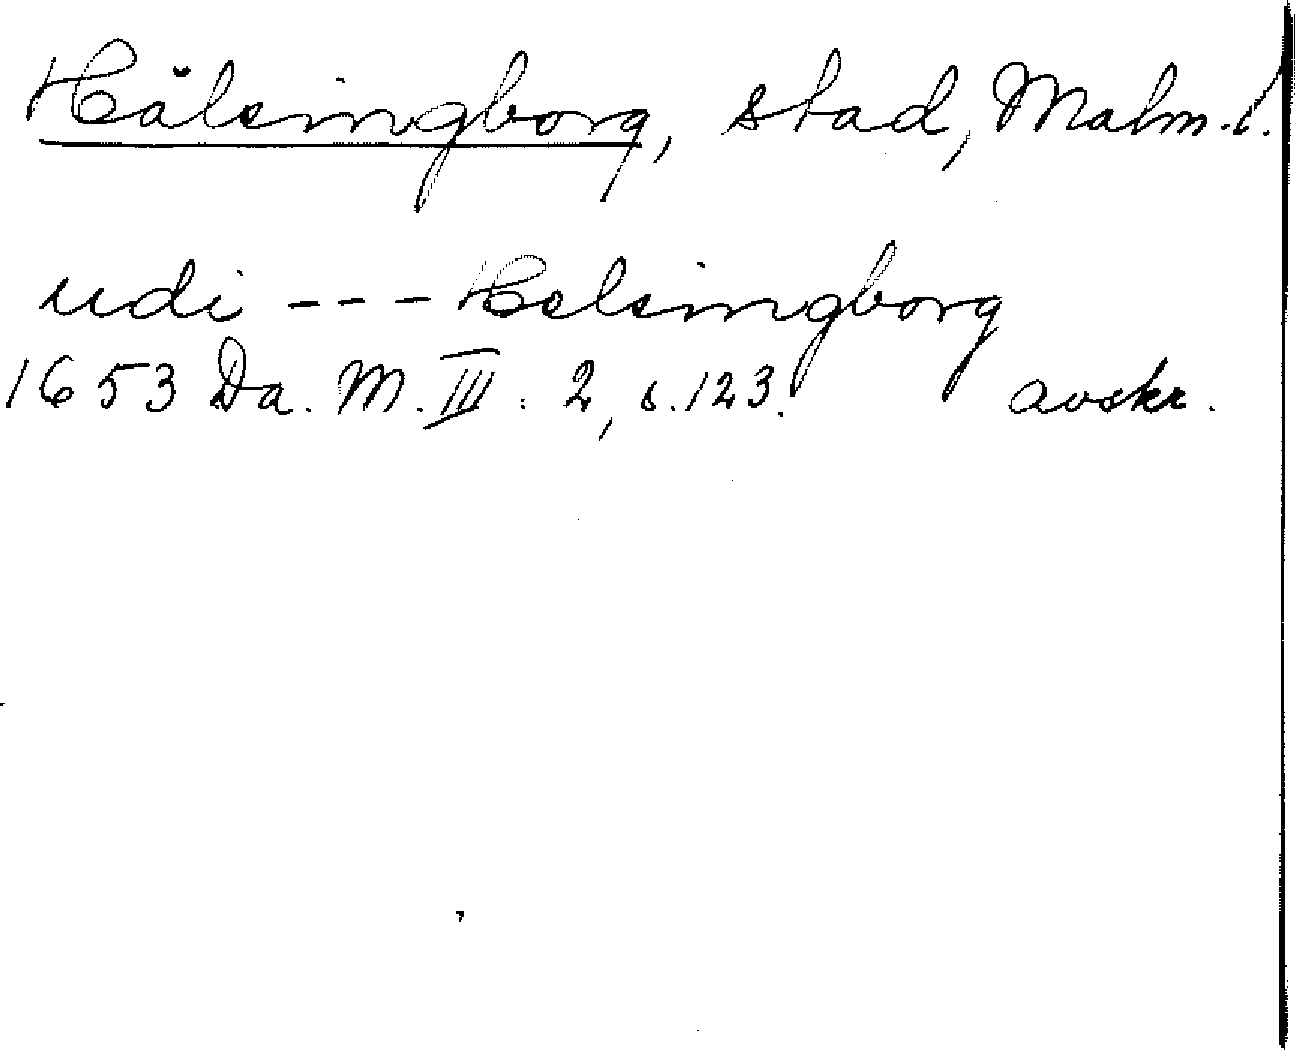 Hälsingborg, stad, Malm. l.
udi --- Helsingborg
1653 Da. M. III. 2, s. 123. avskr.